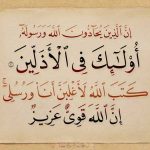 إِنَّ الَّذِينَ يُحَادُّونَ اللَّهَ وَرَسُولَهُ
أُولَٰئِكَ فِي الْأَذَلِّينَ
كَتَبَ اللَّهُ لَأَغْلِبَنَّ أَنَا وَرُسُلِي
إِنَّ اللَّهَ قَوِيٌّ عَزِيزٌ